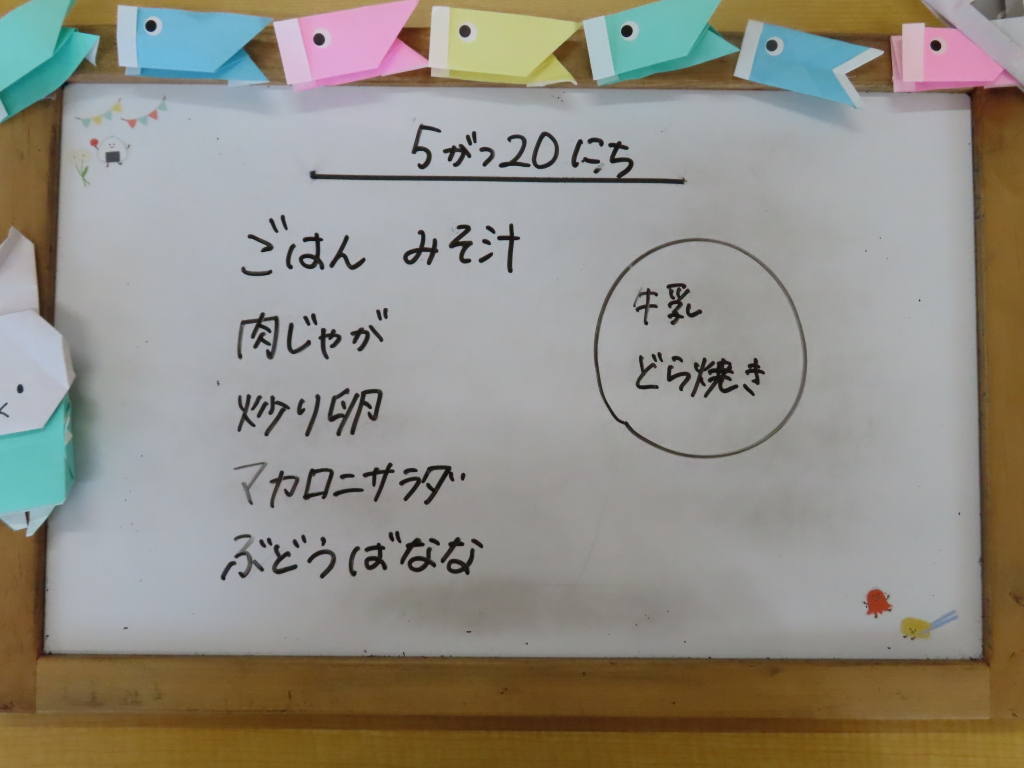 5がつ20にち
ごはん みそ汁
肉じゃが
炒り卵
マカロニサラダ
ぶどうばなな
牛乳
どら焼き